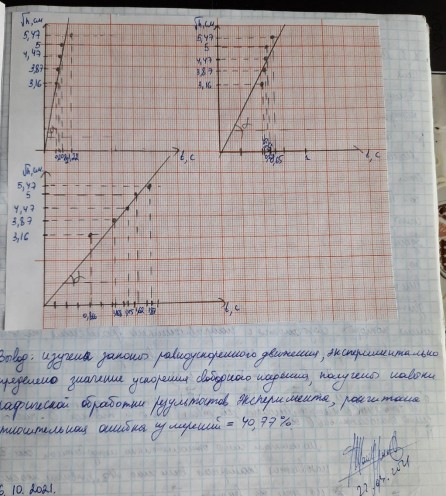 √h, см
5,47
5
4,47
3,87
3,16
t, с
√h, см
5,47
5
4,47
3,87
3,16
1
t, с
√h, см
5,47
5
4,47
3,87
3,16
t, с
Вывод: изучены законы равноускоренного движения, экспериментально
определено значение ускорения свободного падения, получены навыки
графической обработки результатов эксперимента, рассчитана
относительная ошибка измерений = 40,77%
6.10.2021.